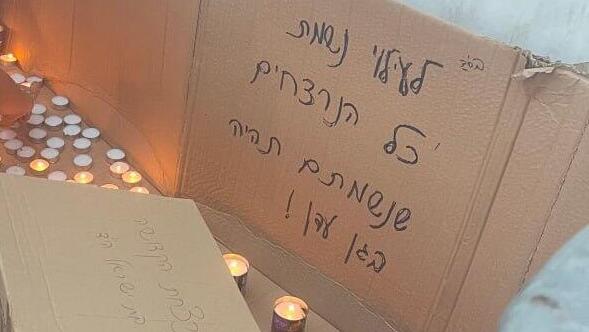 בס״ד
לעילוי נשמת
כל הנרצחים
שנשמתם תהיה
בגן עדן!